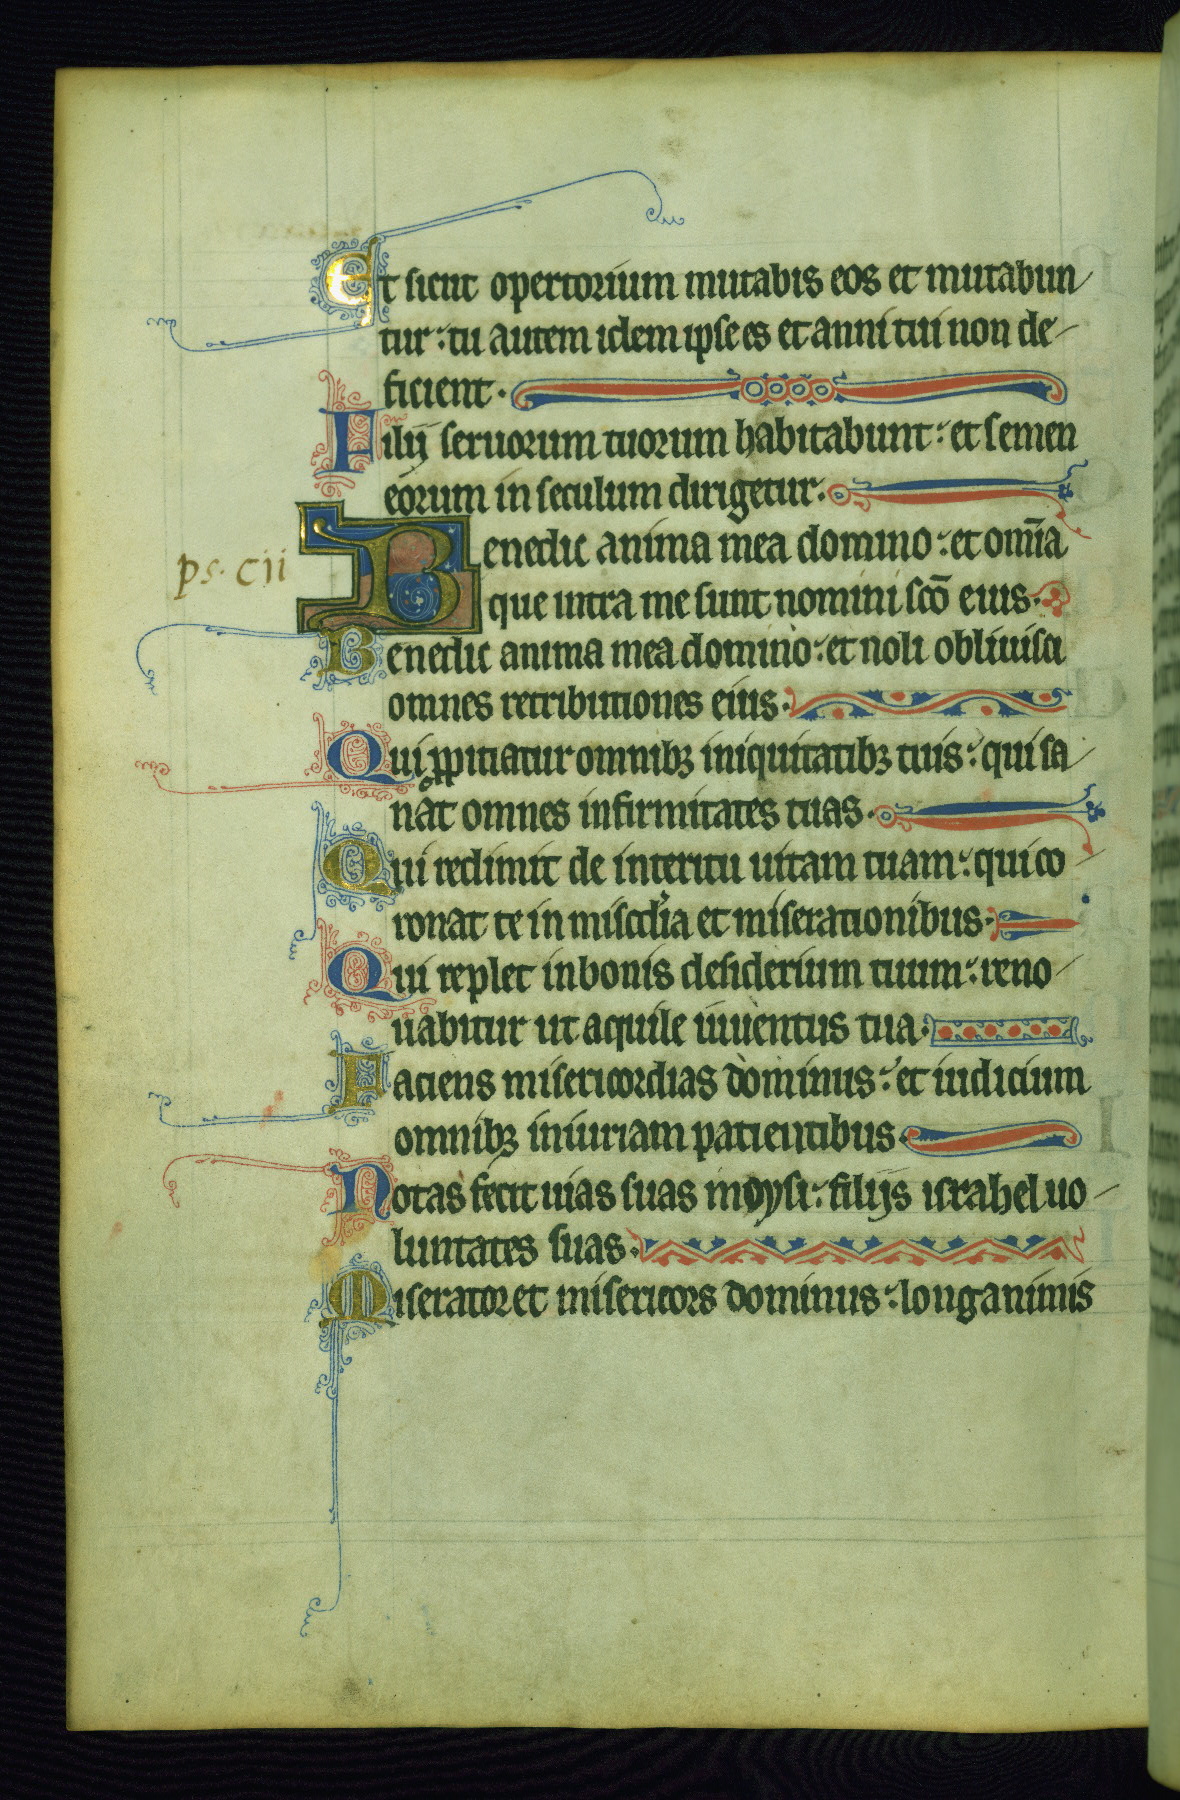 Et sicut opertorium mutabis eos et mutabun
tur: tu autem idem ipse es et anni tui non de
ficient.
Filij seruorum tuorum habitabunt: et semen
eorum in seculum dirigetur:
ps. cii
Benedic anima mea domino: et om̄ia
que intra me sunt nomini sc̄o eius.
Benedic anima mea domino: et noli obliuisci
omnes retributiones eius.
Qui ꝓpitiatur omnibꝫ iniquitatibꝫ tuis: qui sa
nat omnes infirmitates tuas.
Qui redimit de interitu uitam tuam: qui co
ronat te in misc̄dia et miserationibus.
Qui replet in bonis desiderium tuum: reno
uabitur ut aquile iuuentus tua.
Faciens misericordias dominus: et iudicium
omnibꝫ iniuriam patientibus.
Notas fecit uias suas moysi: filijs israhel uo
luntates suas.
Miserator et misericors dominus: longanimis